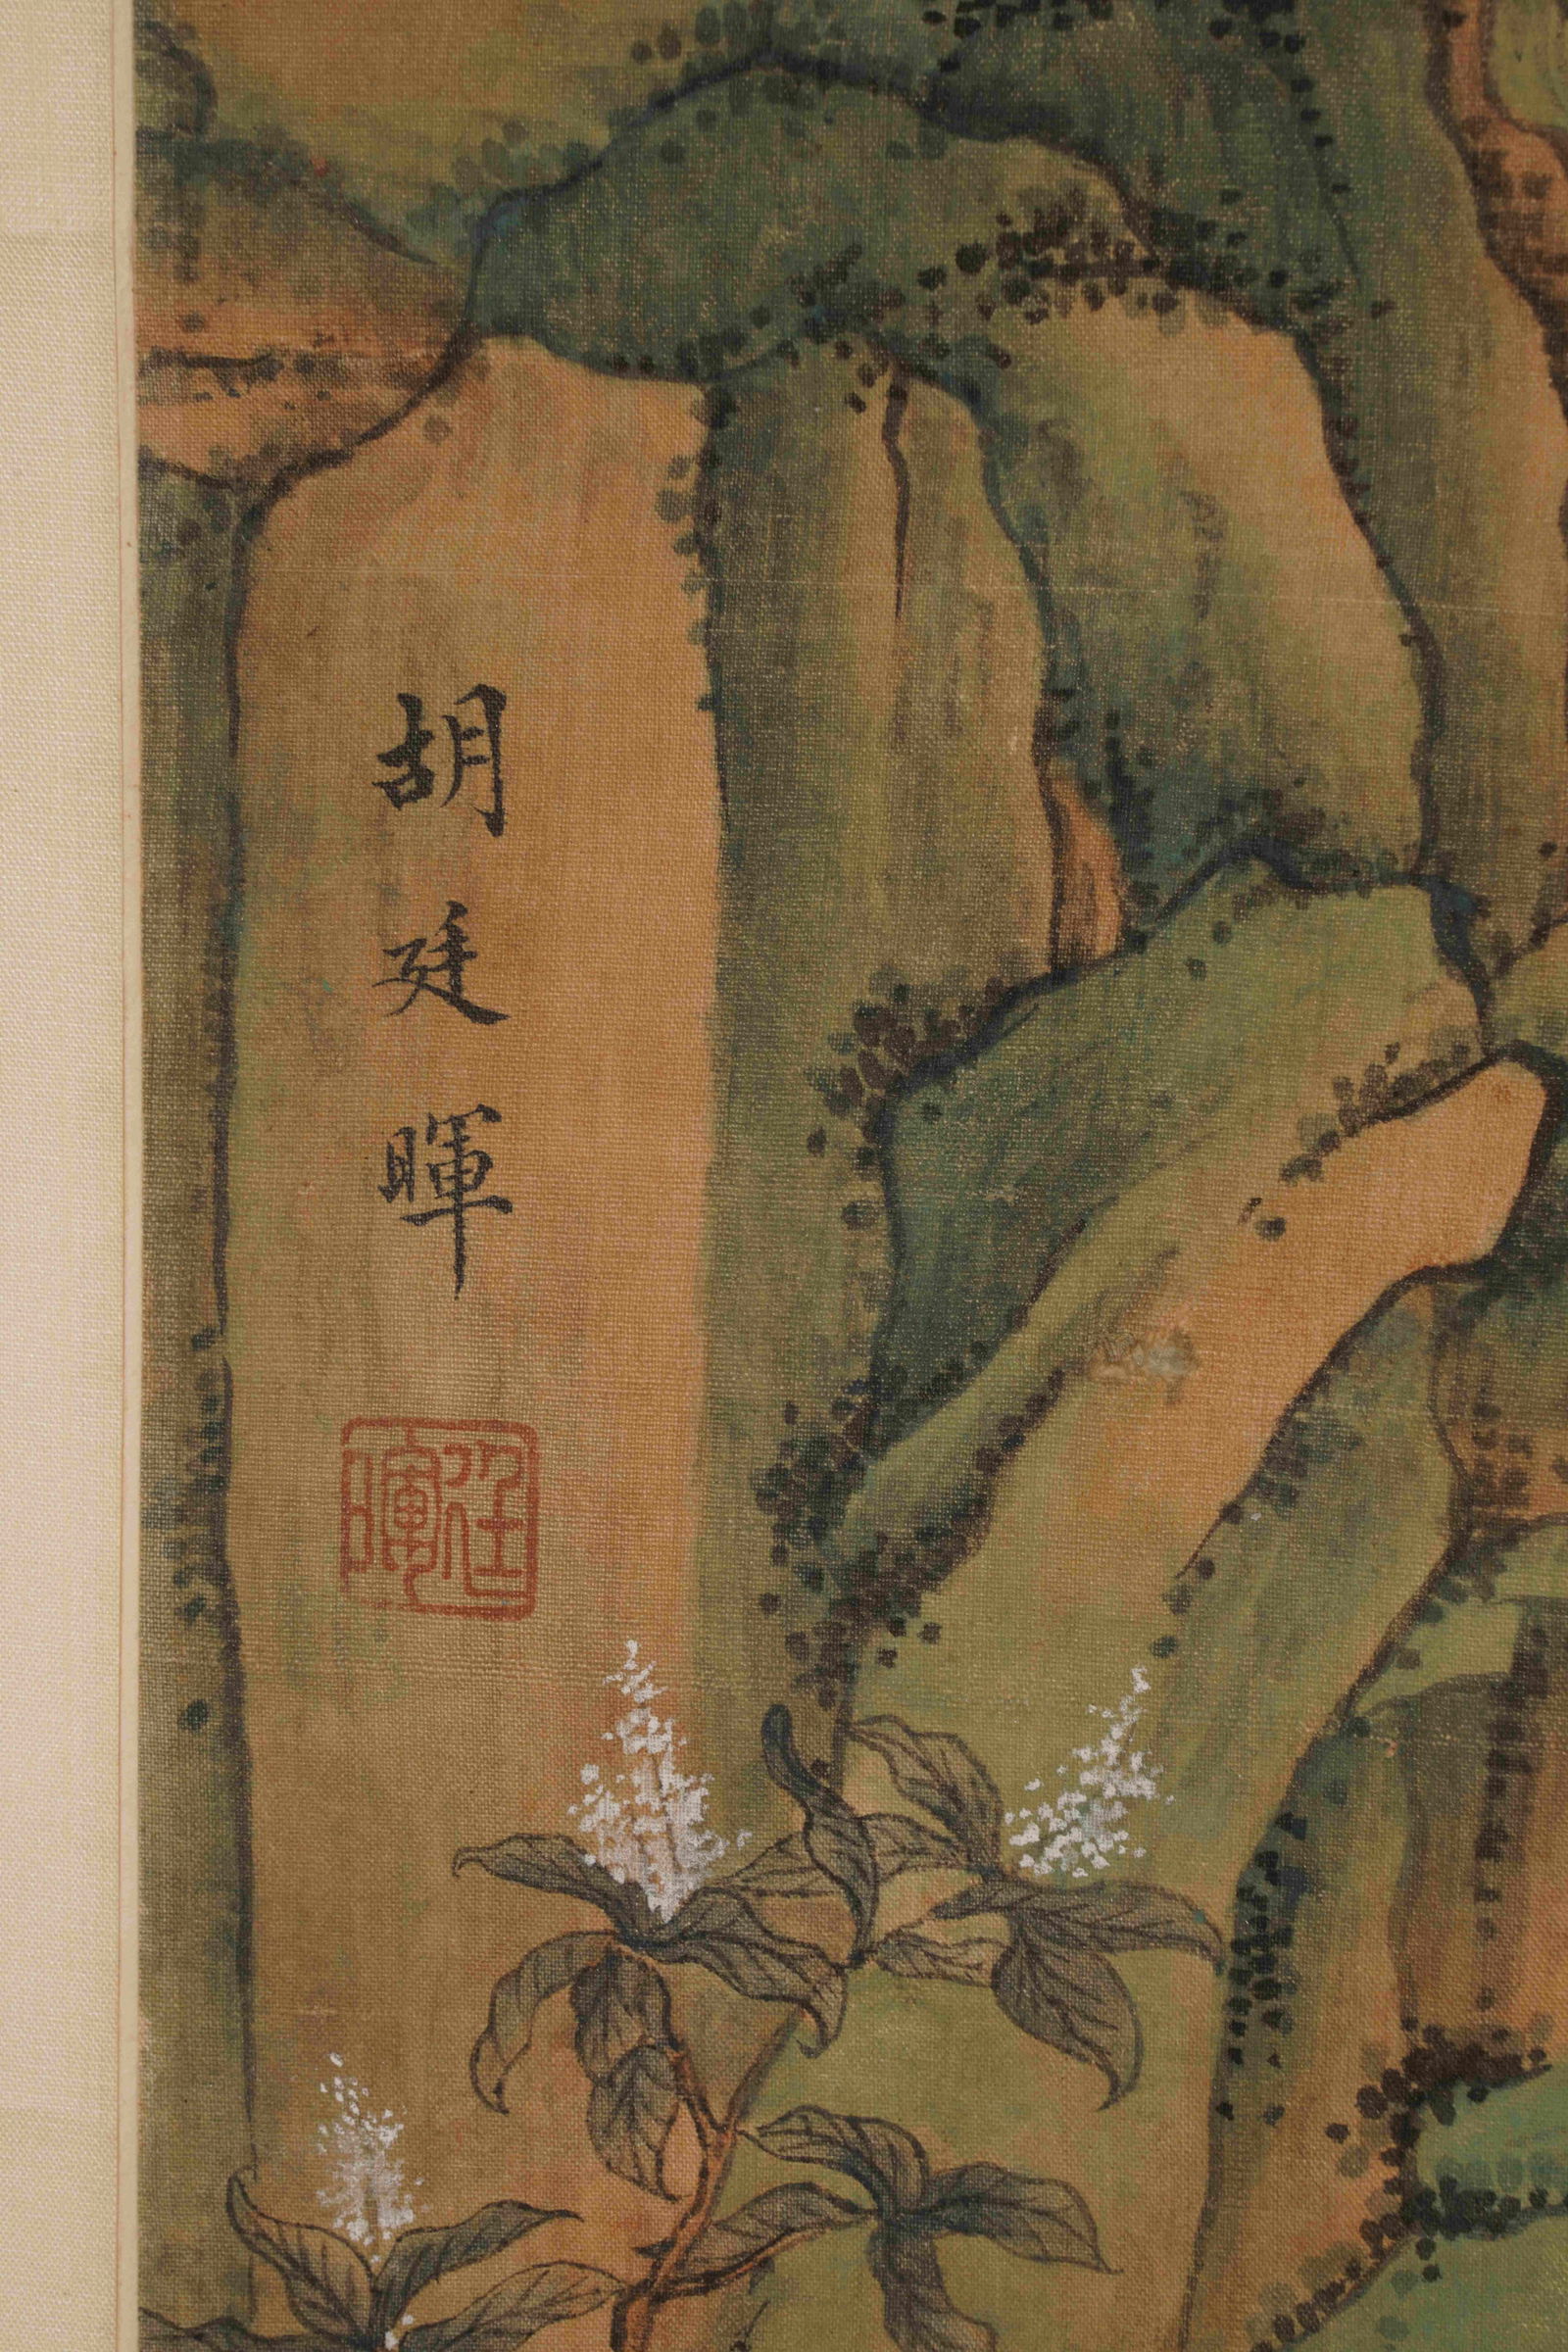 胡廷暉
廷暉